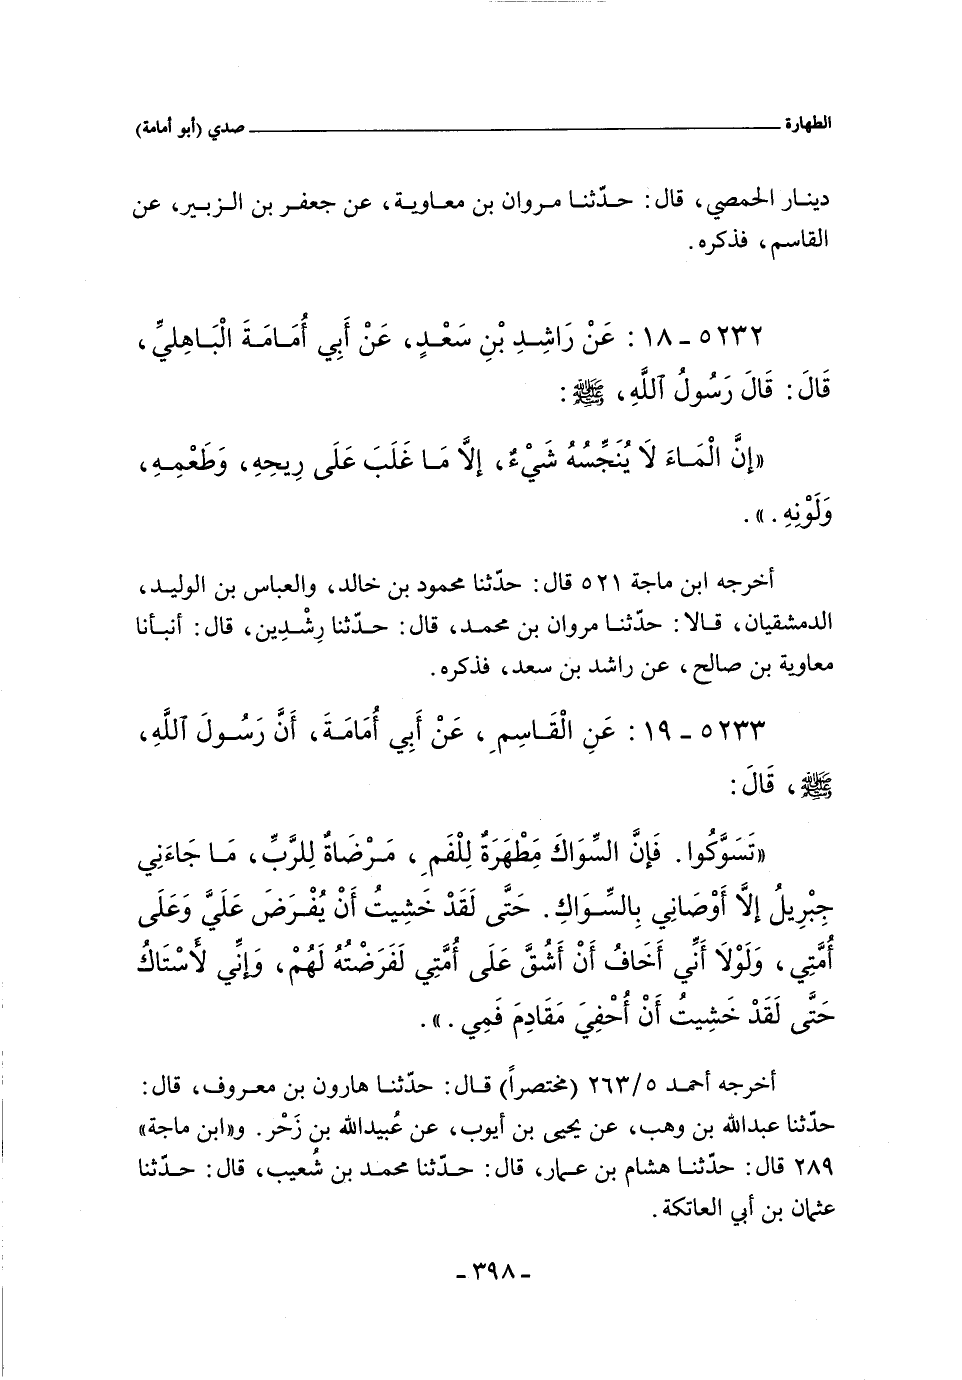 الطهارة ـــــــــــــــ صدي (أبو أمامة)
دينـار الحمصي، قال: حـدّثنـا مـروان بن معـاويـة، عن جعفـر بن الـزبـير، عن
القاسم، فذكره.
٥٢٣٢ ـ ١٨: عَنْ رَاشِـدِ بْنِ سَعْـدٍ، عَنْ أَبِي أُمَـامَـةَ الْبَـاهِلِيِّ،
قَالَ: قَالَ رَسُولُ ٱللَّهِ، ﷺ:
«إِنَّ الْمَـاءَ لَا يُنَجِّسُهُ شَيْءٌ، إِلَّا مَـا غَلَبَ عَلَى رِيحِهِ، وَطَعْمِـهِ،
وَلَوْنِهِ.».
أخرجه ابن ماجة ٥٢١ قال: حدّثنا محمود بن خالد، والعباس بن الوليـد،
الدمشقيان، قـالا: حدّثنـا مروان بن محمـد، قال: حـدّثنا رِشْـدِين، قال: أنبـأنا
معاوية بن صالح، عن راشد بن سعد، فذكره.
٥٢٣٣ ـ ١٩: عَنِ الْقَـاسِمِ، عَنْ أَبِي أُمَامَـةَ، أَنَّ رَسُـولَ ٱللَّهِ،
ﷺ، قَالَ:
«تَسَوَّكُوا. فَإِنَّ السِّوَاكَ مَِطْهَرَةٌ لِلْفَمِ، مَـرْضَاةٌ لِلرَّبِّ، مَـا جَاءَنِي
جِبْرِيلُ إِلَّا أَوْصَانِي بِالسِّـوَاكِ. حَتَّى لَقَدْ خَشِيتُ أَنْ يُفْـرَضَ عَلَيَّ وَعَلَى
أُمَّتِي، وَلَوْلَا أَنِّي أَخَافُ أَنْ أَشُقَّ عَلَى أُمَّتِي لَفَرَضْتُهُ لَهُمْ، وَإِنِّي لَأَسْتَاكُ
حَتَّى لَقَدْ خَشِيتُ أَنْ أُحْفِيَ مَقَادِمَ فَمِي.».
أخرجه أحمـد ٢٦٣/٥ (مختصراً) قـال: حدّثنـا هارون بن معـروف، قال:
حدّثنا عبدالله بن وهب، عن يحيى بن أيوب، عن عُبيدالله بن زَحْر. و«ابن ماجة»
٢٨٩ قال: حدّثنـا هشام بن عـمار، قال: حـدّثنا محمـد بن شُعيب، قال: حـدّثنا
عثمان بن أبي العاتكة.
ـ ٣٩٨ ـ